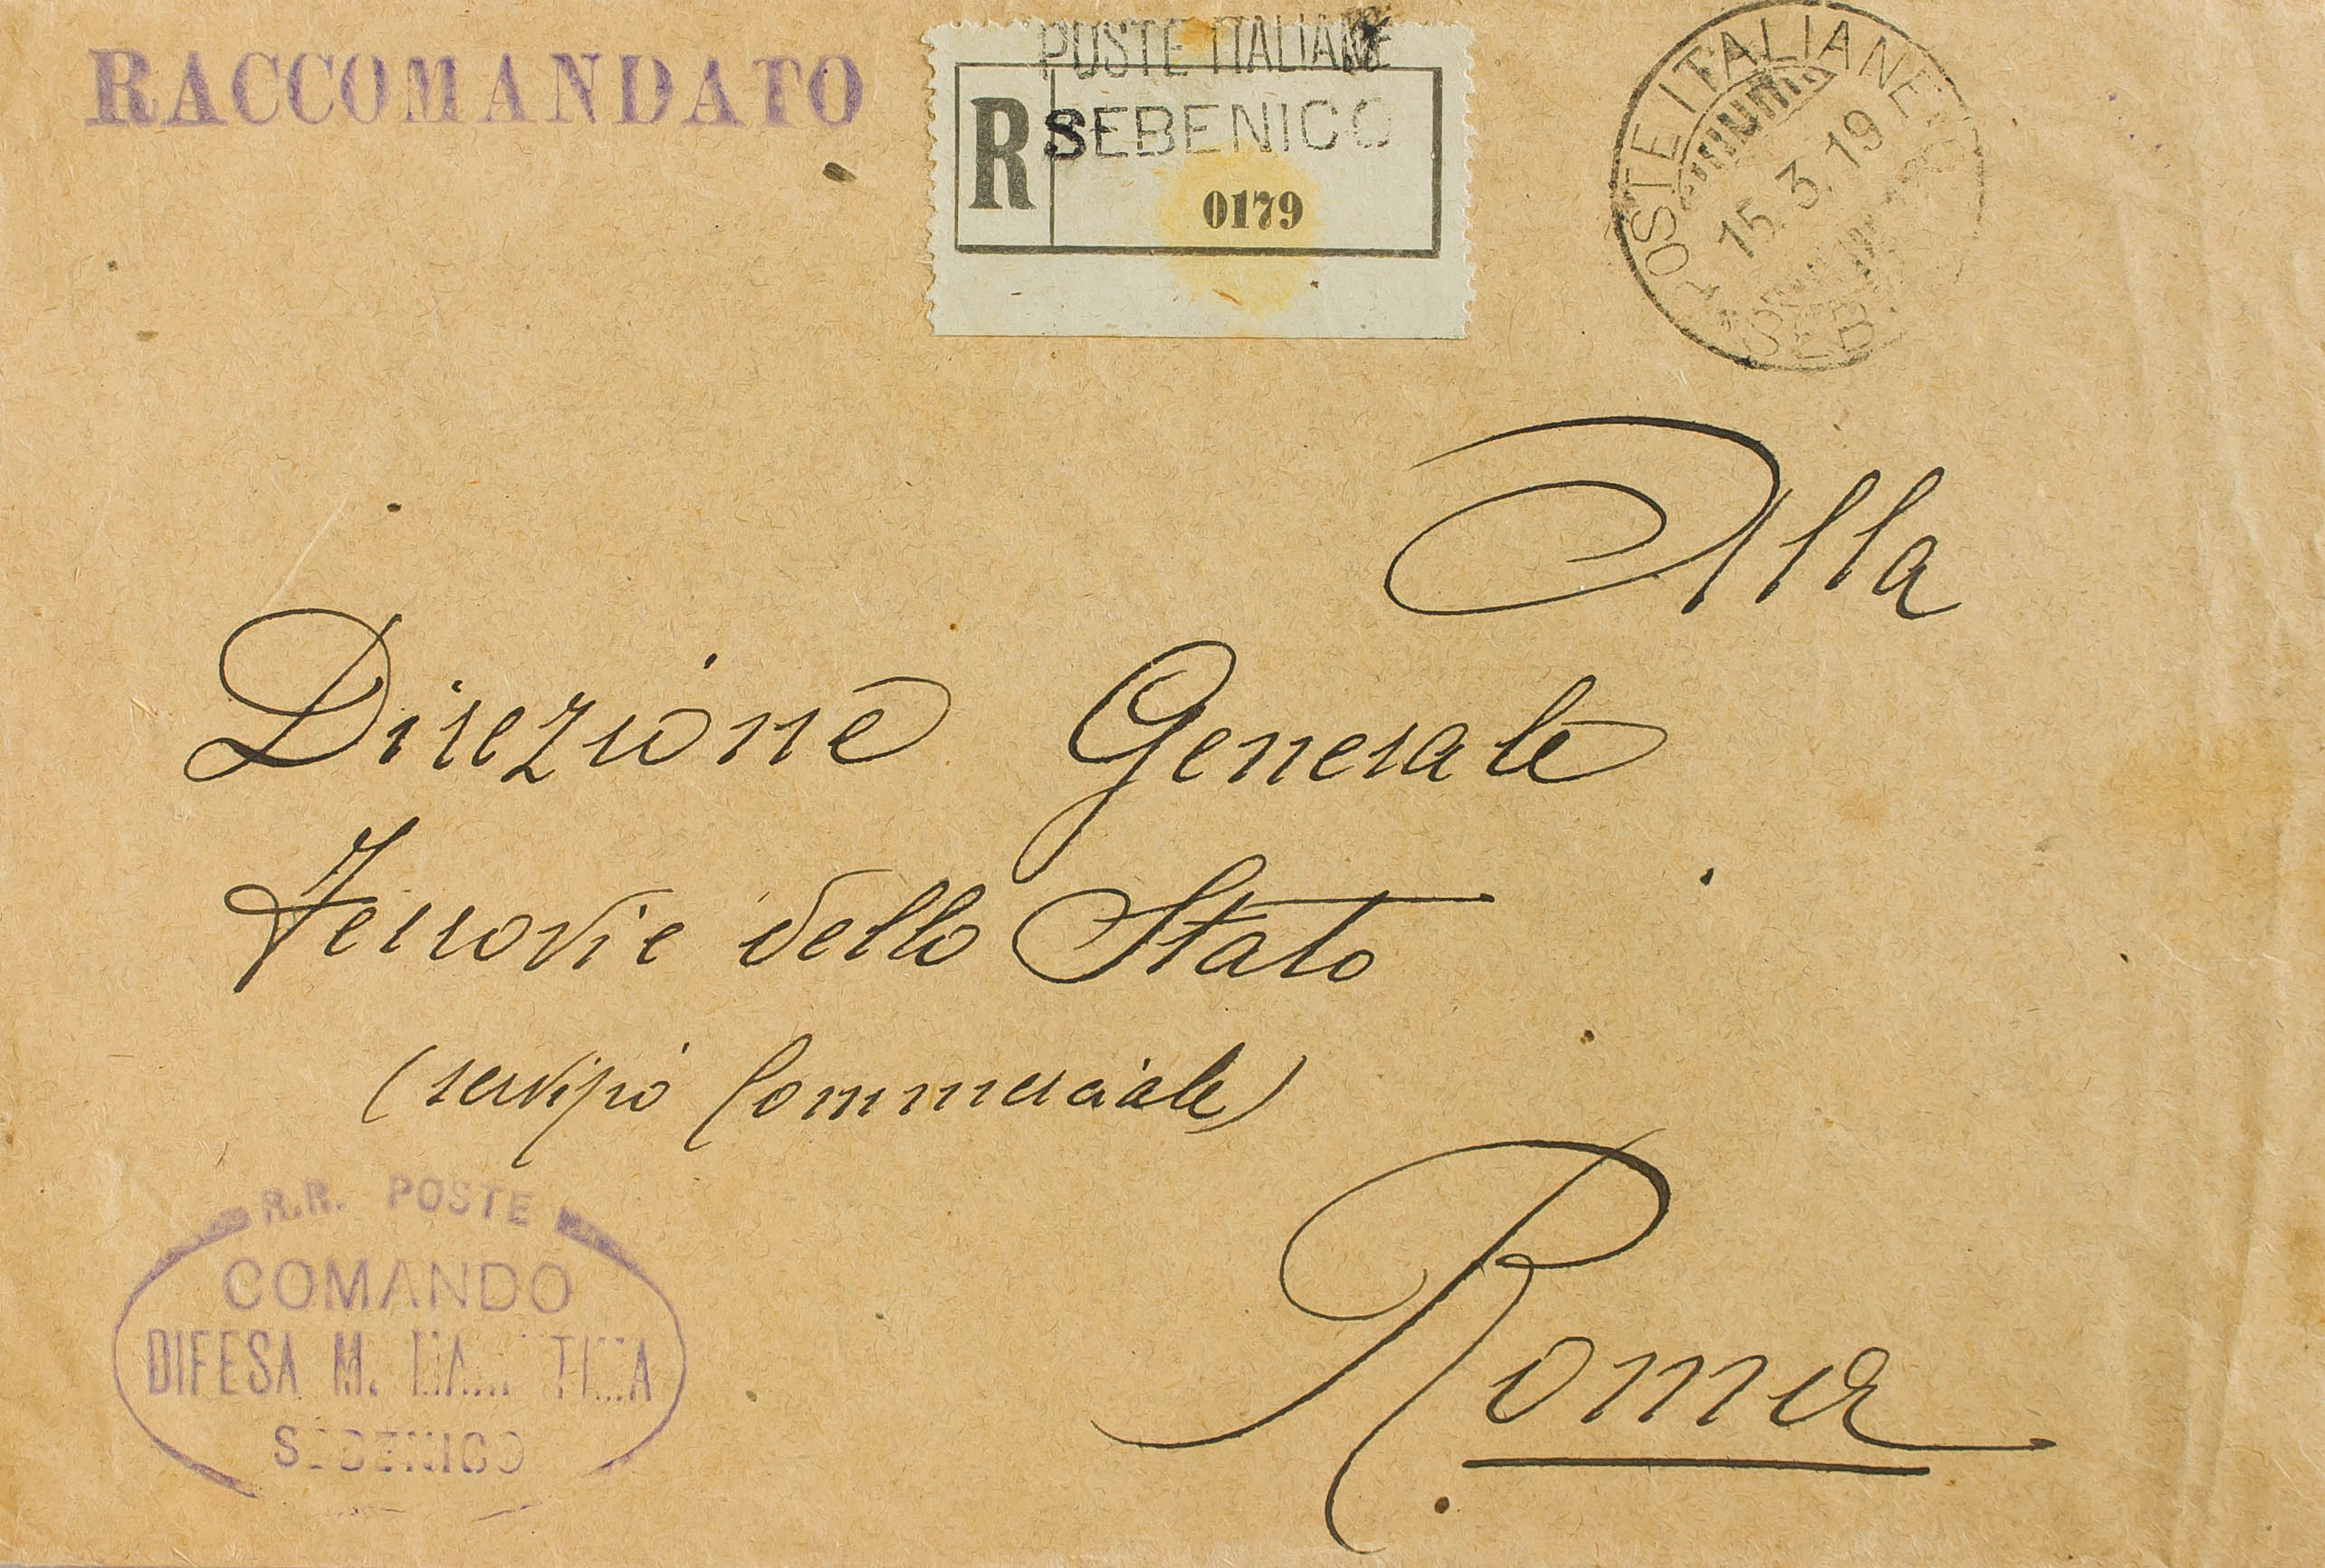 RACCOMANDATO
POSTE ITALIANE
R SEBENICO
0179
POSTE ITALIANE
15.3.19
Alla
Direzione Generale
Ferrovie dello Stato
(servizio Commerciale)
Roma
R.R. POSTE
COMANDO
DIFESA M.
SEBENICO